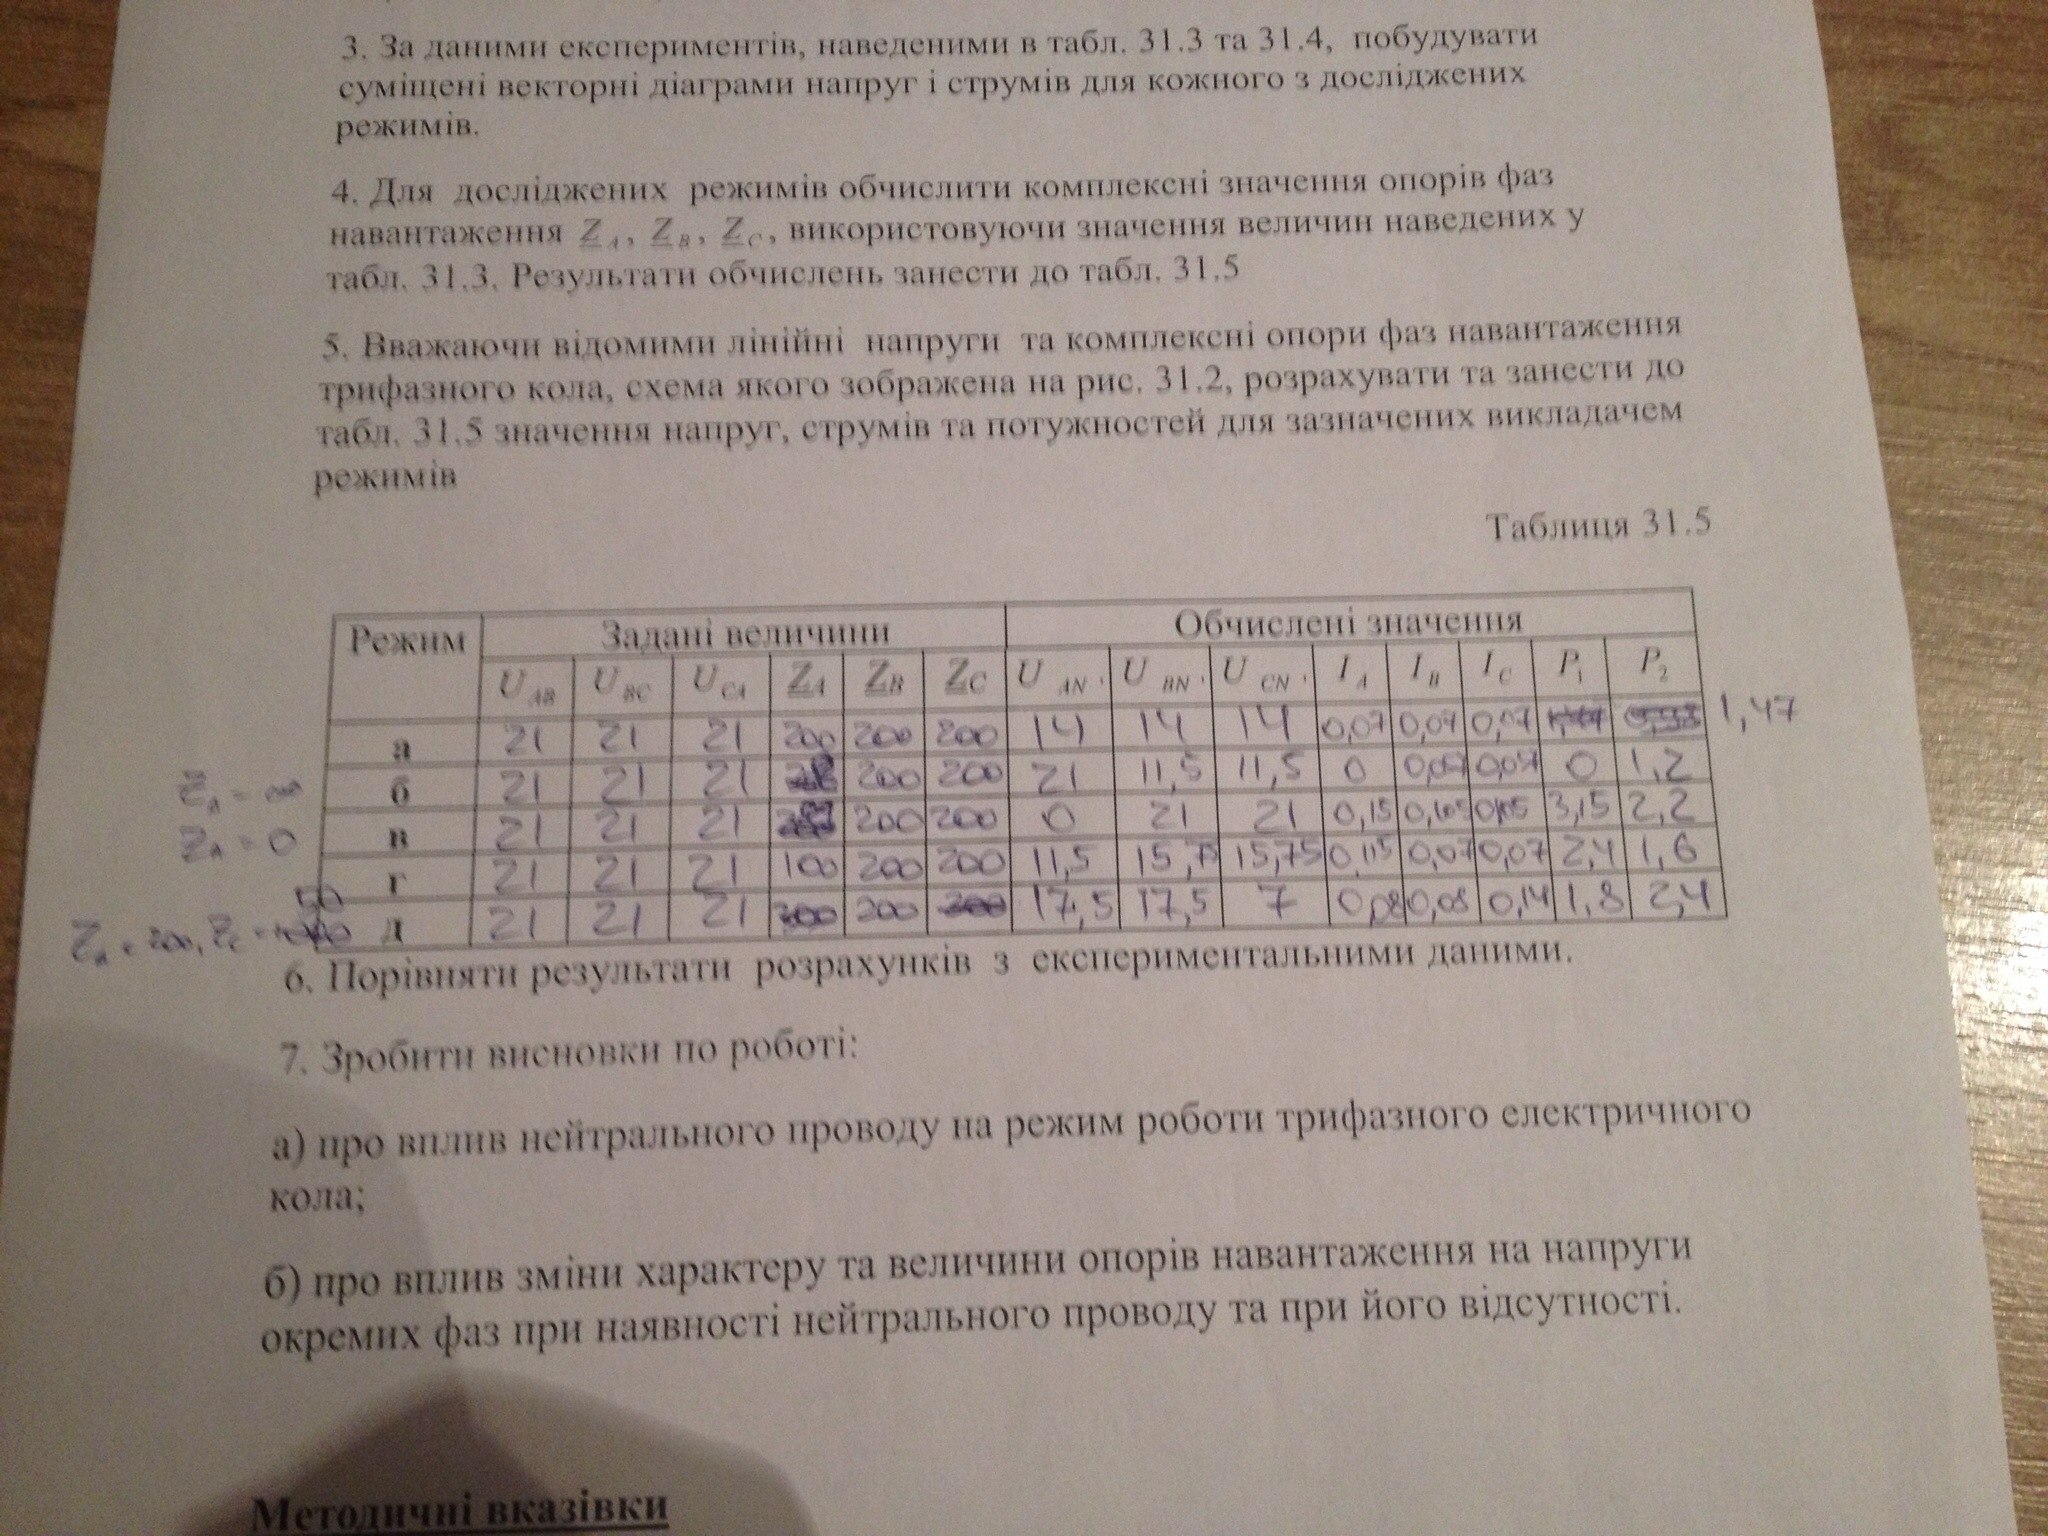 3. За даними експериментів, наведеними в табл. 31.3 та 31.4, побудувати
суміщені векторні діаграми напруг і струмів для кожного з досліджених
режимів.
4. Для досліджених режимів обчислити комплексні значення опорів фаз
навантаження Z_A, Z_B, Z_C, використовуючи значення величин наведених у
табл. 31.3. Результати обчислень занести до табл. 31.5
5. Вважаючи відомими лінійні напруги та комплексні опори фаз навантаження
трифазного кола, схема якого зображена на рис. 31.2, розрахувати та занести до
табл. 31.5 значення напруг, струмів та потужностей для зазначених викладачем
режимів
Таблиця 31.5
Режим Задані величини Обчислені значення
U_AB U_BC U_CA Z_A Z_B Z_C U_AN' U_BN' U_CN' I_A I_B I_C P_1 P_2
а 21 21 21 200 200 200 14 14 14 0,07 0,07 0,07 1,47
Z_A = ∞ б 21 21 21 200 200 21 11,5 11,5 0 0 1,2
Z_A = 0 в 21 21 21 200 200 0 21 21 0,15 3,15 2,2
г 21 21 21 100 200 200 11,5 15,75 15,75 0,115 0,07 0,07 2,4 1,6
Z_A = 200, Z_C = 50 д 21 21 21 200 17,5 17,5 7 0,08 0,08 0,14 1,8 2,4
6. Порівняти результати розрахунків з експериментальними даними.
7. Зробити висновки по роботі:
а) про вплив нейтрального проводу на режим роботи трифазного електричного
кола;
б) про вплив зміни характеру та величини опорів навантаження на напруги
окремих фаз при наявності нейтрального проводу та при його відсутності.
Методичні вказівки